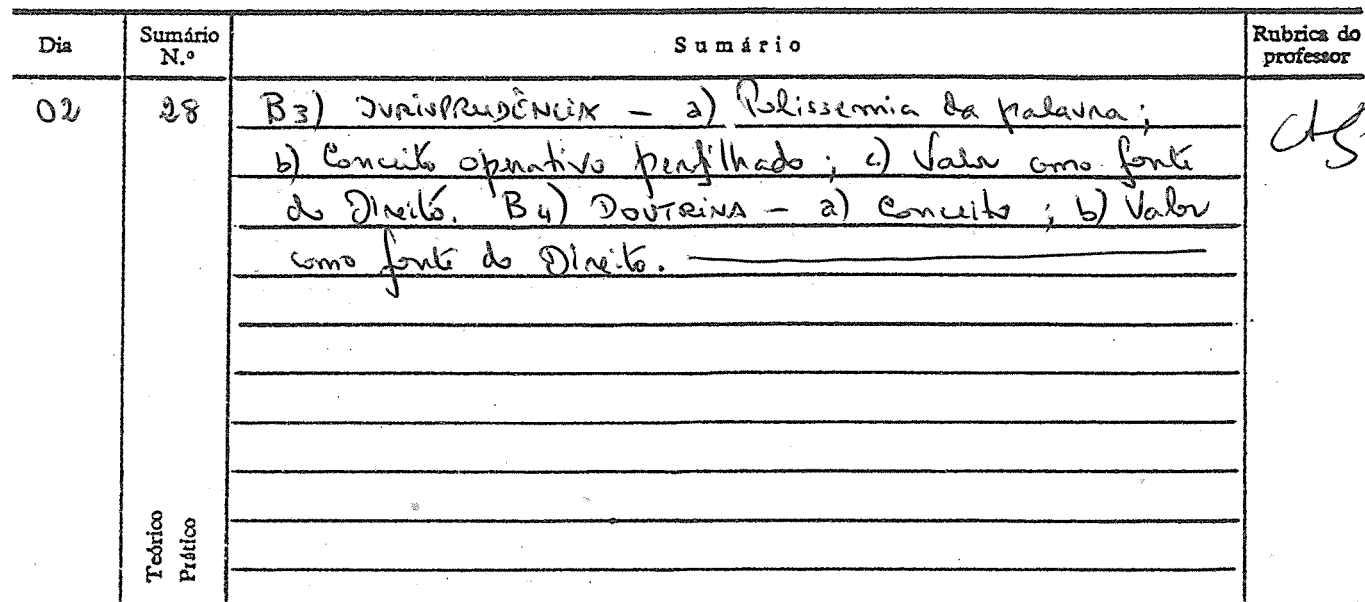 Dia
Sumário N.º
Sumário
Rubrica do professor
02
28
B3) JURISPRUDÊNCIA — a) Polissemia da palavra;
b) Conceito operativo perfilhado; c) Valor como fonte
do Direito. B4) DOUTRINA — a) Conceito; b) Valor
como fonte do Direito.
Teórico
Prático